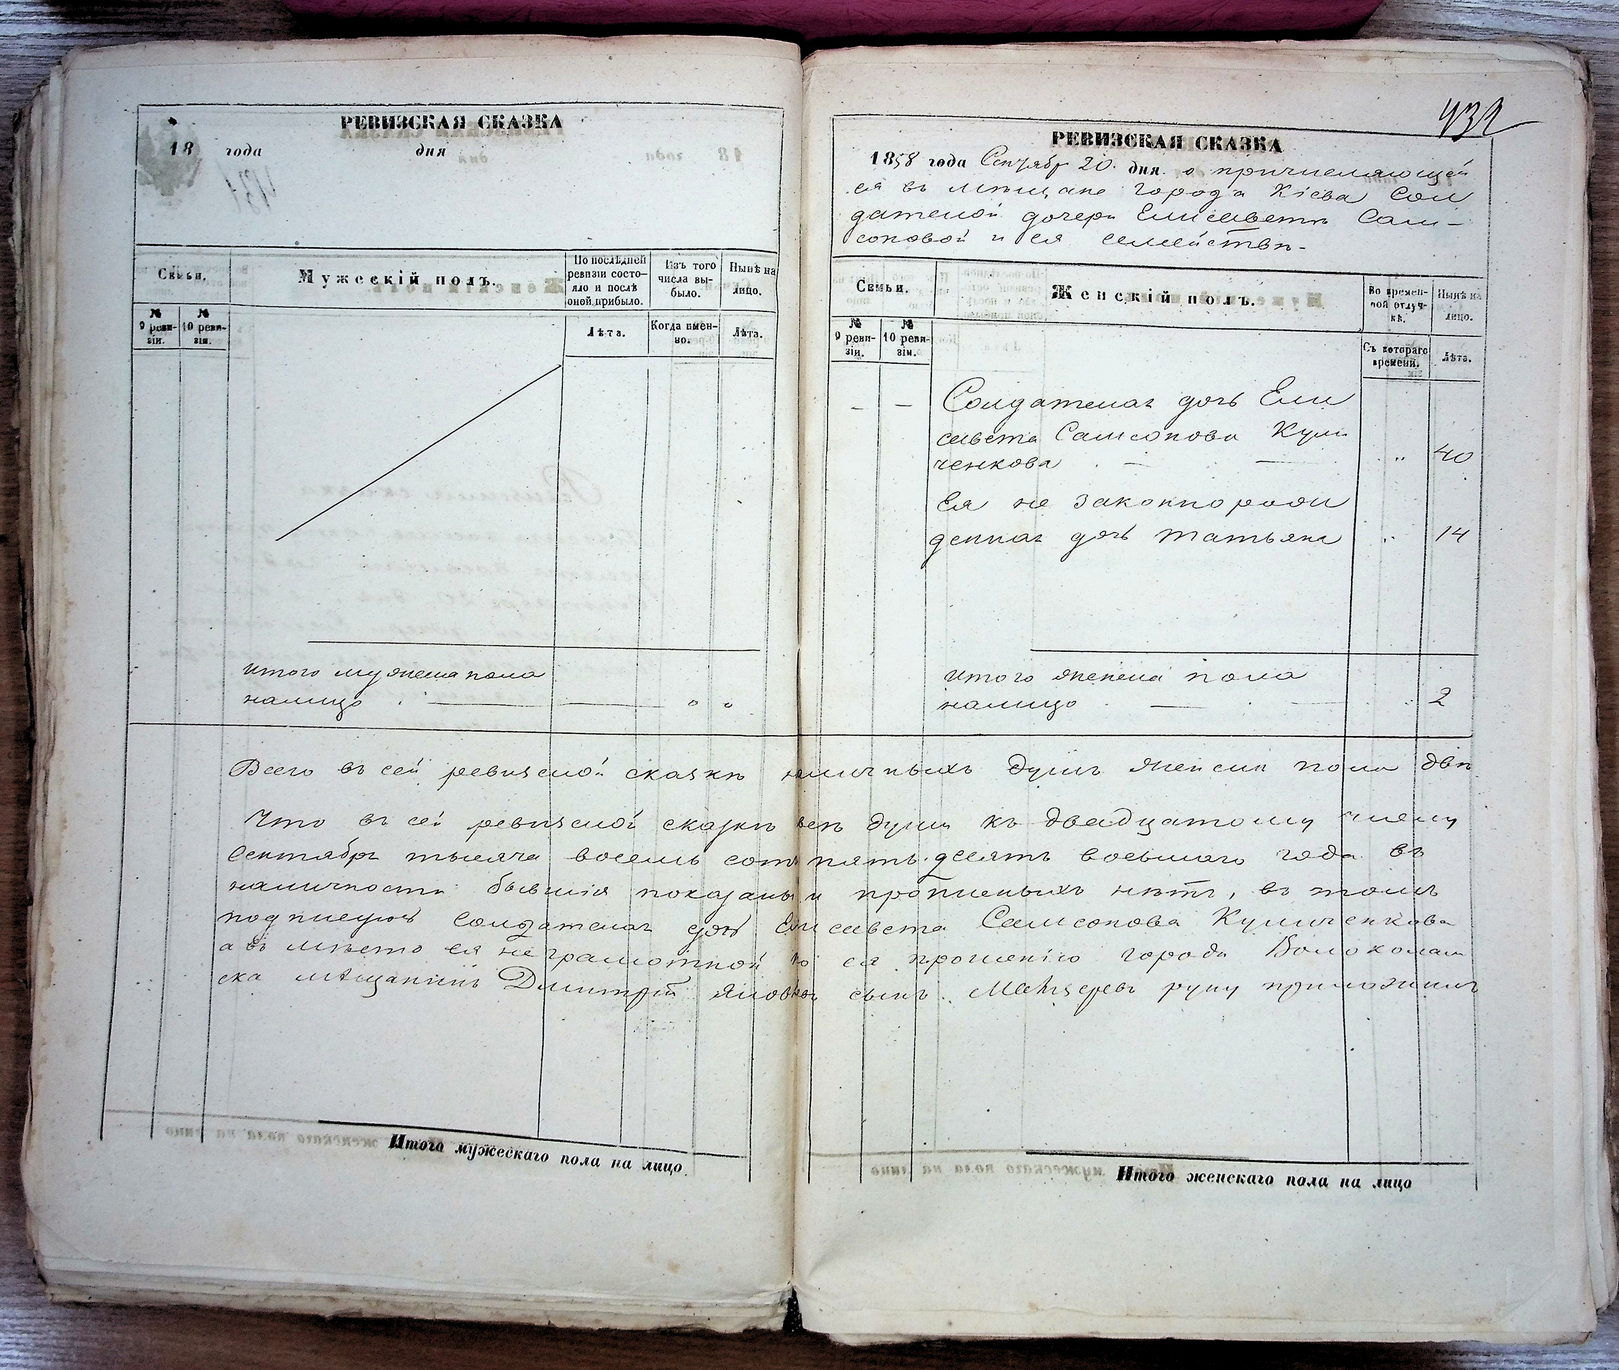 РЕВИЗСКАЯ СКАЗКА
18 года дня
431
Семьи.
Мужескій полъ.
По послѣдней ревизіи состояло и послѣ оной прибыло.
Изъ того числа выбыло.
Нынѣ на лицо.
№ 9 ревизіи.
№ 10 ревизіи.
Лѣта.
Когда именно.
Лѣта.
итого мужеска пола
налицо
Итого мужескаго пола на лицо
432
РЕВИЗСКАЯ СКАЗКА
1858 года Сентября 20. дня о причисляющей
ся въ мѣщане города Кіева Сол
датской дочери Елисаветы Сам-
соновой и ея семействѣ.
Семьи.
Женскій полъ.
Во временной отлучкѣ.
Нынѣ на лицо.
№ 9 ревизіи.
№ 10 ревизіи.
Съ котораго времени.
Лѣта.
Солдатская дочь Ели
савета Самсонова Кули
ченкова 40
Ея не законнорож
денная дочь Татьяна 14
итого женска пола
налицо 2
Всего въ сей ревизской сказкѣ наличныхъ душъ женска пола двѣ
Что въ сей ревизской сказкѣ всѣ души къ двадцатому числу
Сентября тысяча восемь сотъ пятьдесятъ восьмаго года въ
наличности бывшія показаны и прописныхъ нѣтъ, въ томъ
подписуюсь Солдатская дочь Елисавета Самсонова Куличенкова
а въ мѣсто ея неграмотной по ея прошенію города Волоколам
ска мѣщанинъ Дмитрій сынъ руку приложилъ
Итого женскаго пола на лицо